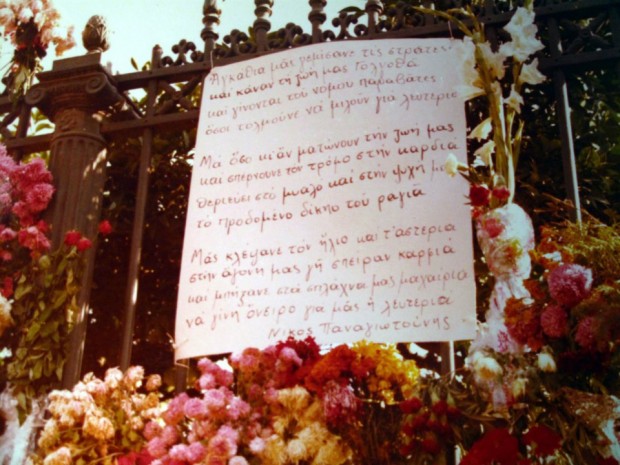 Ἀγκάθια μᾶς γεμίσανε τίς στράτες
καί κάναν τή ζωή μας Γολγοθᾶ
καί γίνονται τοῦ νόμου παραβάτες
ὅσοι τολμοῦνε νά μιλοῦν γιά λευτεριά
Μά ὅσο κι' ἄν ματώνουν τήν ζωή μας
καί σπέρνουνε τόν τρόμο στήν καρδιά
θεριεύει στό μυαλό καί στήν ψυχή μας
τό προδομένο δίκηο τοῦ ραγιᾶ
Μᾶς κλέψανε τόν ἥλιο καί τ' ἀστέρια
στήν ἄγονη μας γῆ σπείραν καρφιά
καί μπήξανε στά σπλάχνα μας μαχαίρια
νά γίνη ὄνειρο γιά μᾶς ἡ λευτεριά
Νίκος Παναγιωτούνης